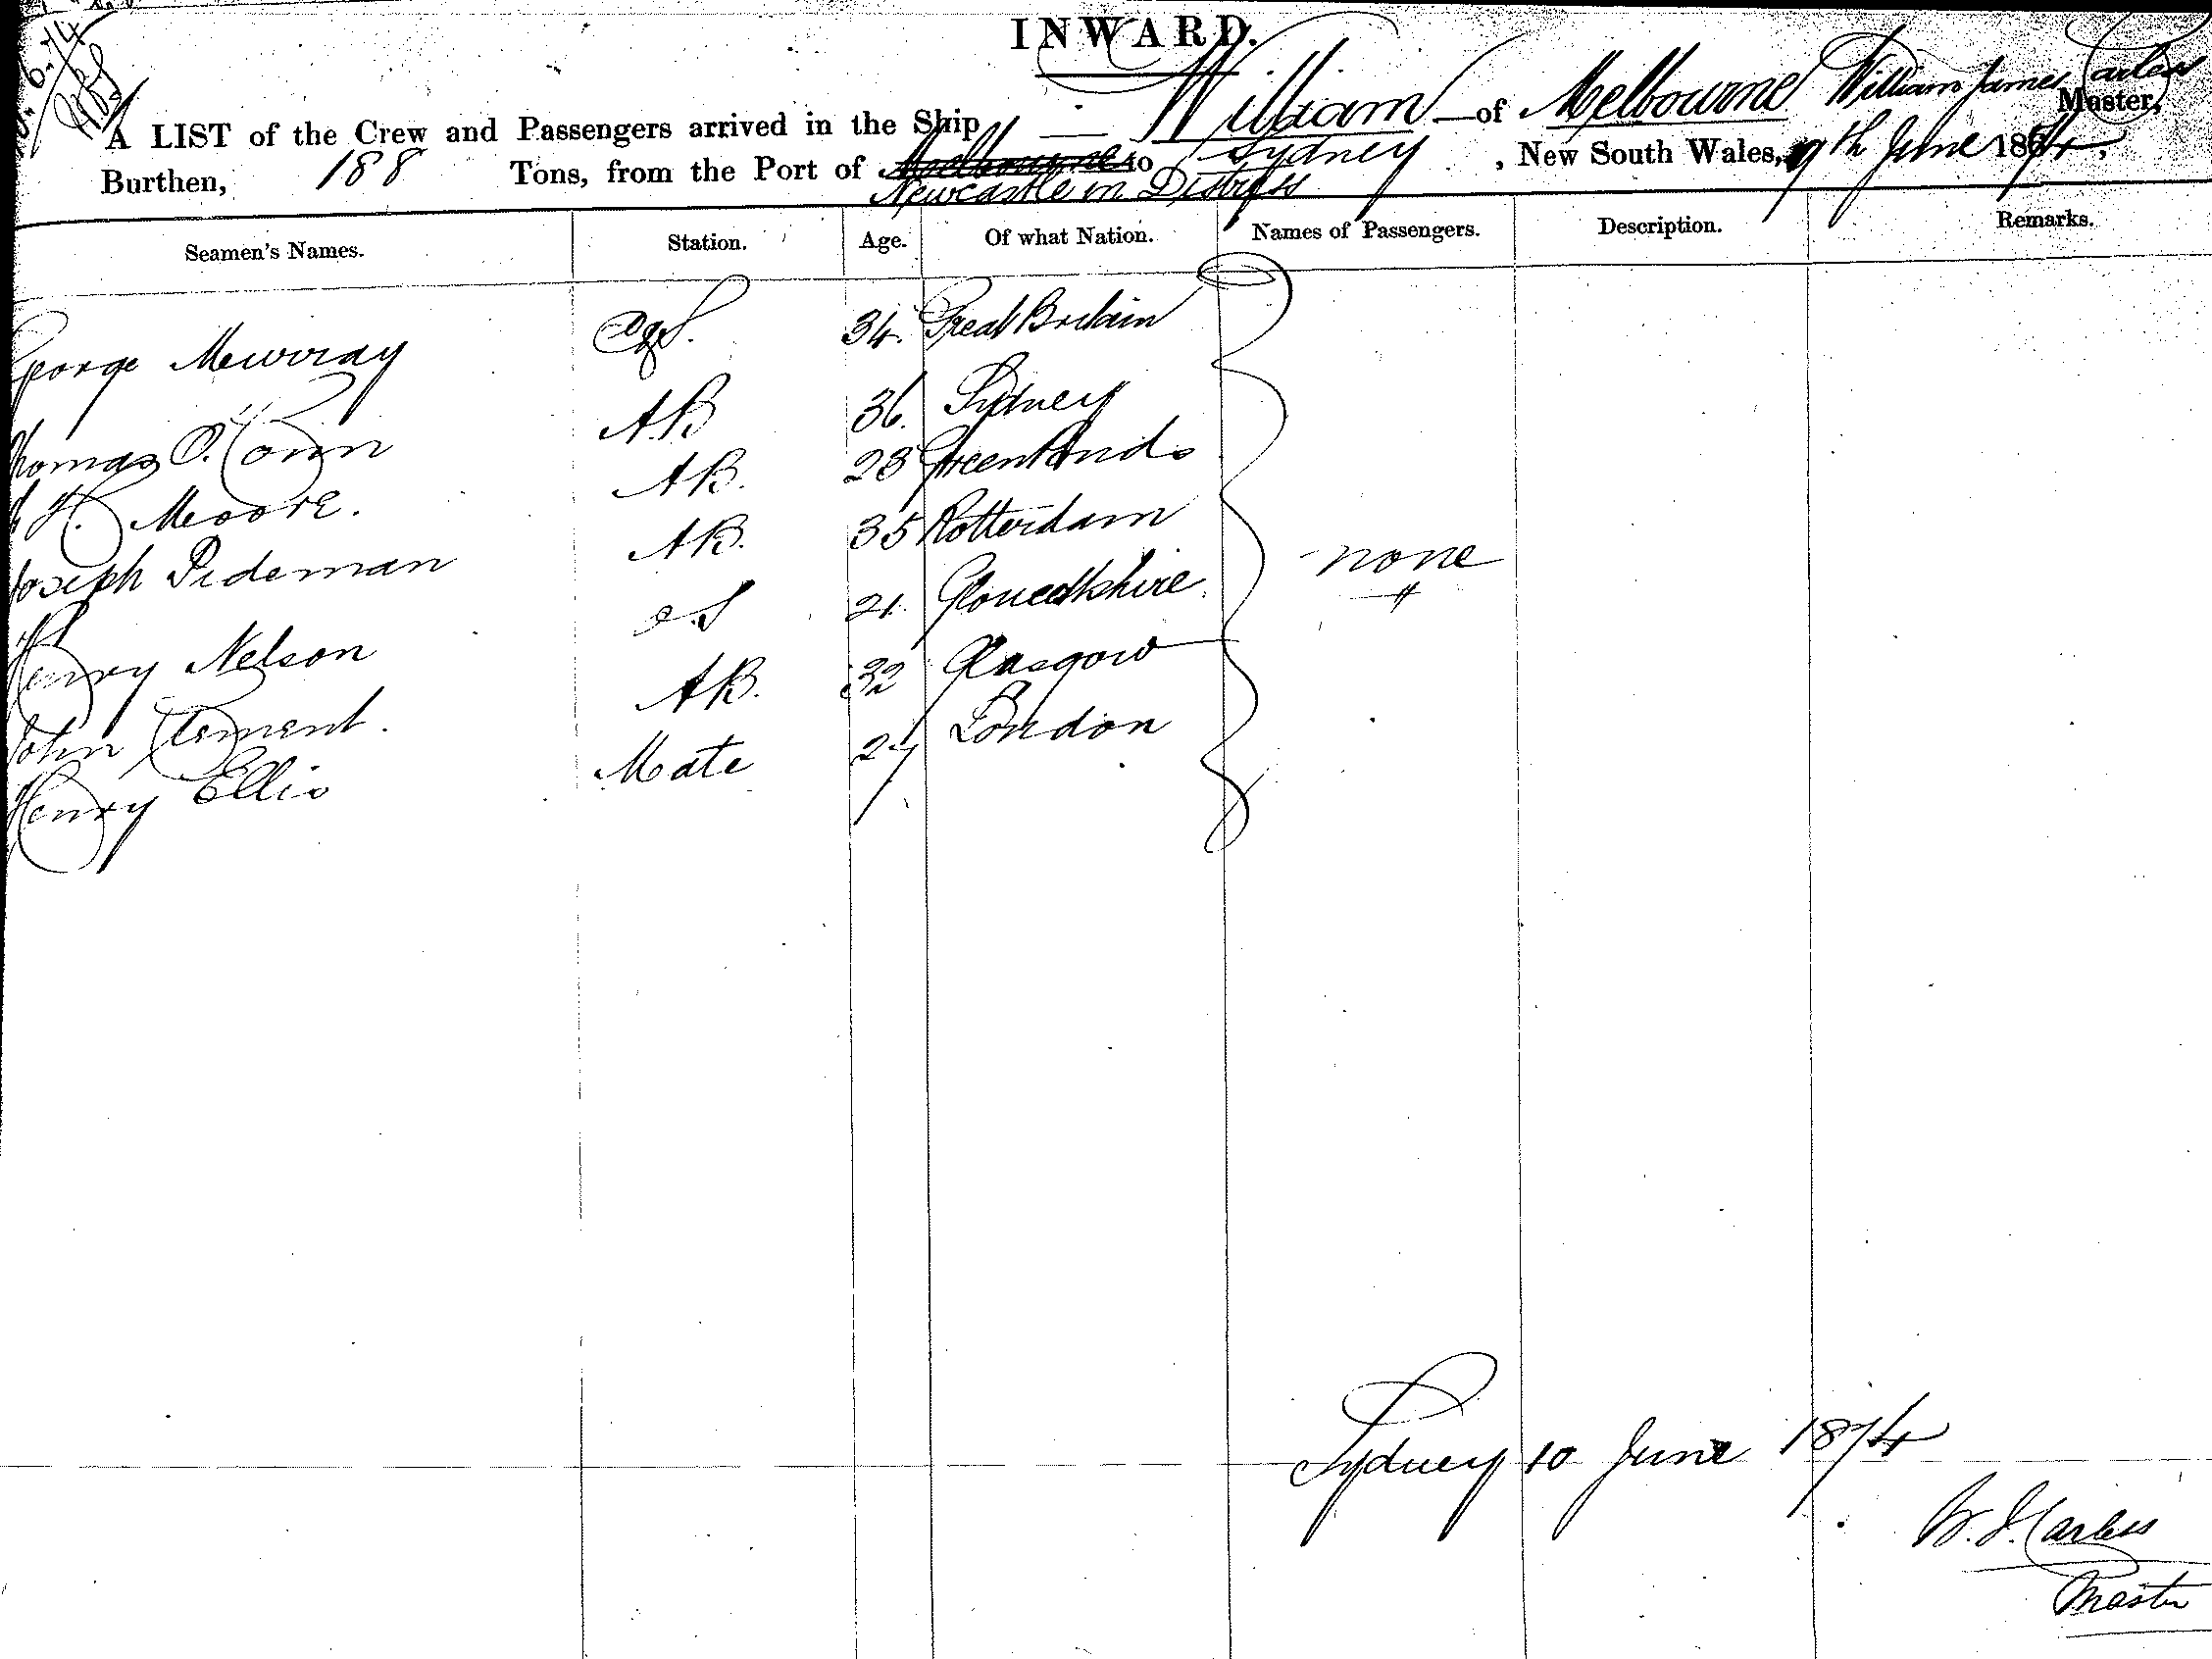 INWARD.
A LIST of the Crew and Passengers arrived in the Ship — William — of Melbourne William James Carless Master,
Burthen, 188 Tons, from the Port of Melbourne to Sydney, New South Wales, 9th June 1874,
Newcastle in Distress
Seamen's Names. Station. Age. Of what Nation. Names of Passengers. Description. Remarks.
George Murray 34. Great Britain
Thomas O'Conn AB 36. Sydney
H. Moore. AB. 28 Greenlands
Joseph Pideman AB. 35 Rotterdam
none
Henry Nelson O.S 21. Gloucestshire
John Clement. AB. 32 Glasgow
Henry Ellis Mate 27 London
Sydney 10 June 1874
W. J. Carless
Master